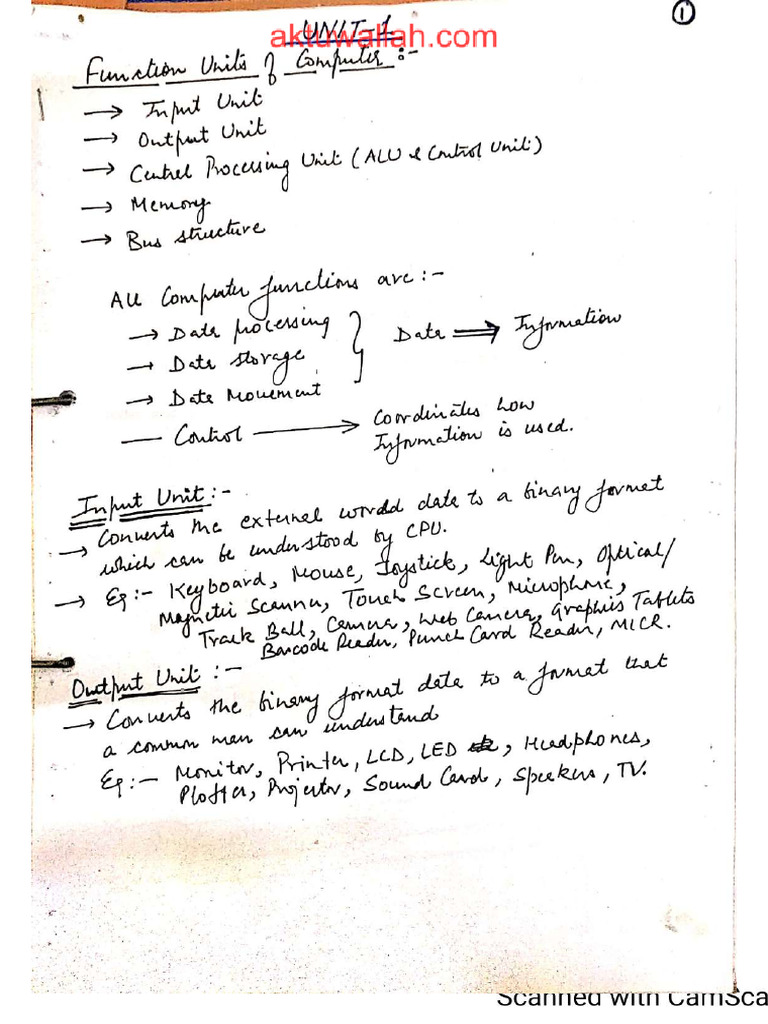 ①
UNIT-1
aktuwallah.com
Function Units of Computer :-
→ Input Unit
→ Output Unit
→ Central Processing Unit (ALU & Control Unit)
→ Memory
→ Bus structure
All Computer functions are :-
→ Data processing
→ Data storage
→ Data Movement
} Data ⟹ Information
— Control ⟶ Coordinates how
Information is used.
Input Unit :-
→ Converts the external world data to a binary format
which can be understood by CPU.
→ Eg :- Keyboard, Mouse, Joystick, Light Pen, Optical/
Magnetic Scanner, Touch Screen, Microphone,
Track Ball, Camera, Web Camera, Graphics Tablets
Barcode Reader, Punch Card Reader, MICR.
Output Unit :-
→ Converts the binary format data to a format that
a common man can understand
Eg :- Monitor, Printer, LCD, LED, Headphones,
Plotter, Projector, Sound Card, Speakers, TV.
Scanned with CamSca